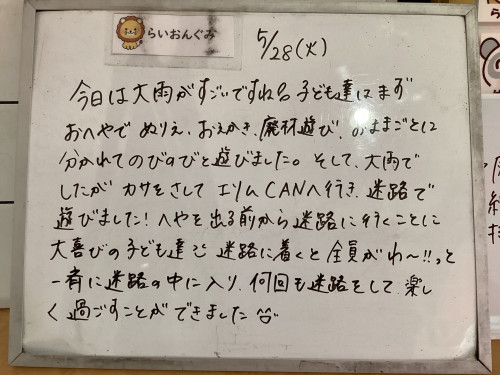 らいおんぐみ
5/28(火)
今日は大雨がすごいですね。子ども達はまず
おへやで ぬりえ、おえかき、廃材遊び、おままごとに
分かれてのびのびと遊びました。そして、大雨で
したが カサをさして エリムCANへ行き、迷路で
遊びました!へやを出る前から迷路に行くことに
大喜びの子ども達 迷路に着くと全員がわ〜!!っと
一斉に迷路の中に入り、何回も迷路をして、楽し
く過ごすことができました